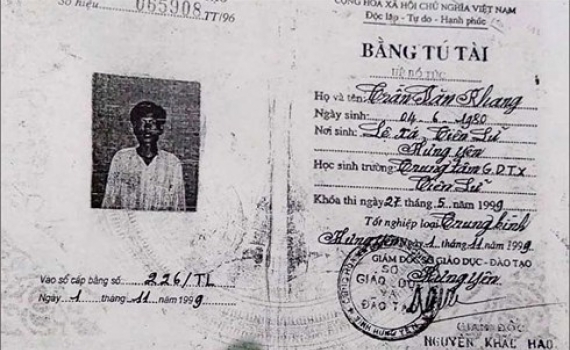 Số hiệu 065908 TT/96
Vào sổ cấp bằng số 226/TL
Ngày 1 tháng 11 năm 1999
CỘNG HÒA XÃ HỘI CHỦ NGHĨA VIỆT NAM
Độc lập - Tự do - Hạnh phúc
BẰNG TÚ TÀI
HỆ BỔ TÚC
Họ và tên: Trần Văn Khang
Ngày sinh: 04.6.1980
Nơi sinh: Lệ Xá, Tiên Lữ
Hưng Yên
Học sinh trường: Trung tâm G.D.T.X
Tiên Lữ
Khóa thi ngày 27 tháng 5 năm 1999
Tốt nghiệp loại Trung bình
Hưng Yên Ngày 1 tháng 11 năm 1999
GIÁM ĐỐC SỞ GIÁO DỤC - ĐÀO TẠO
Hưng Yên
SỞ
GIÁO DỤC
VÀ
ĐÀO TẠO
TỈNH HƯNG YÊN
GIÁM ĐỐC
NGUYỄN KHẮC HÀO